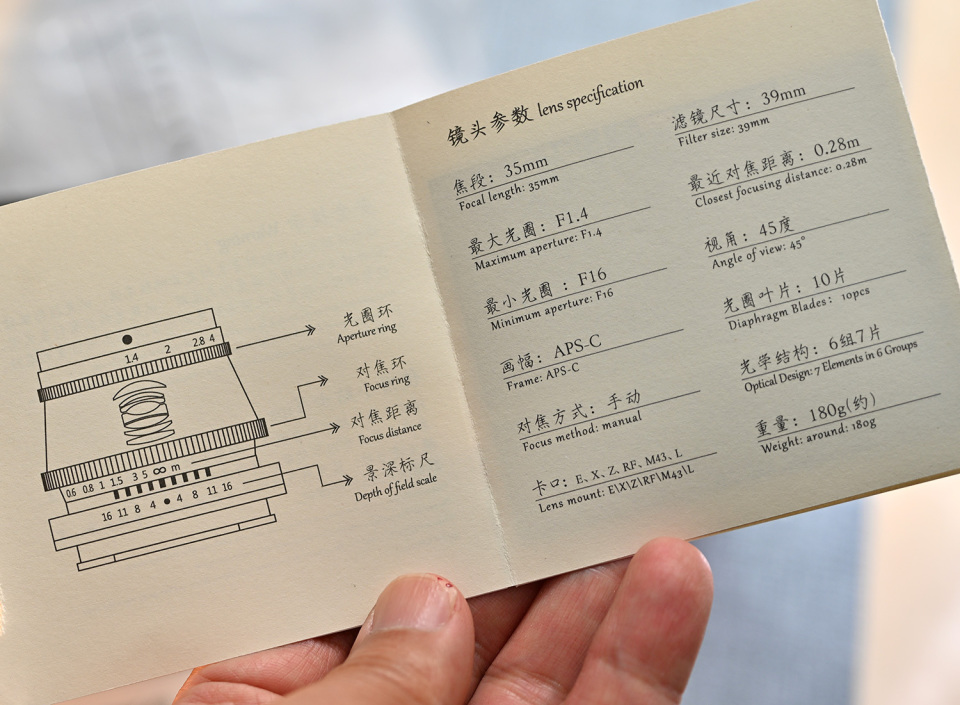 1.4 2 2.8 4
0.6 0.8 1 1.5 3 5 ∞ m
16 11 8 4 ● 4 8 11 16
光圈环
Aperture ring
对焦环
Focus ring
对焦距离
Focus distance
景深标尺
Depth of field scale
镜头参数 lens specification
焦段：35mm
Focal length: 35mm
最大光圈：F1.4
Maximum aperture: F1.4
最小光圈：F16
Minimum aperture: F16
画幅：APS-C
Frame: APS-C
对焦方式：手动
Focus method: manual
卡口：E、X、Z、RF、M43、L
Lens mount: E\X\Z\RF\M43\L
滤镜尺寸：39mm
Filter size: 39mm
最近对焦距离：0.28m
Closest focusing distance: 0.28m
视角：45度
Angle of view: 45°
光圈叶片：10片
Diaphragm Blades： 10pcs
光学结构：6组7片
Optical Design: 7 Elements in 6 Groups
重量：180g(约)
Weight: around: 180g